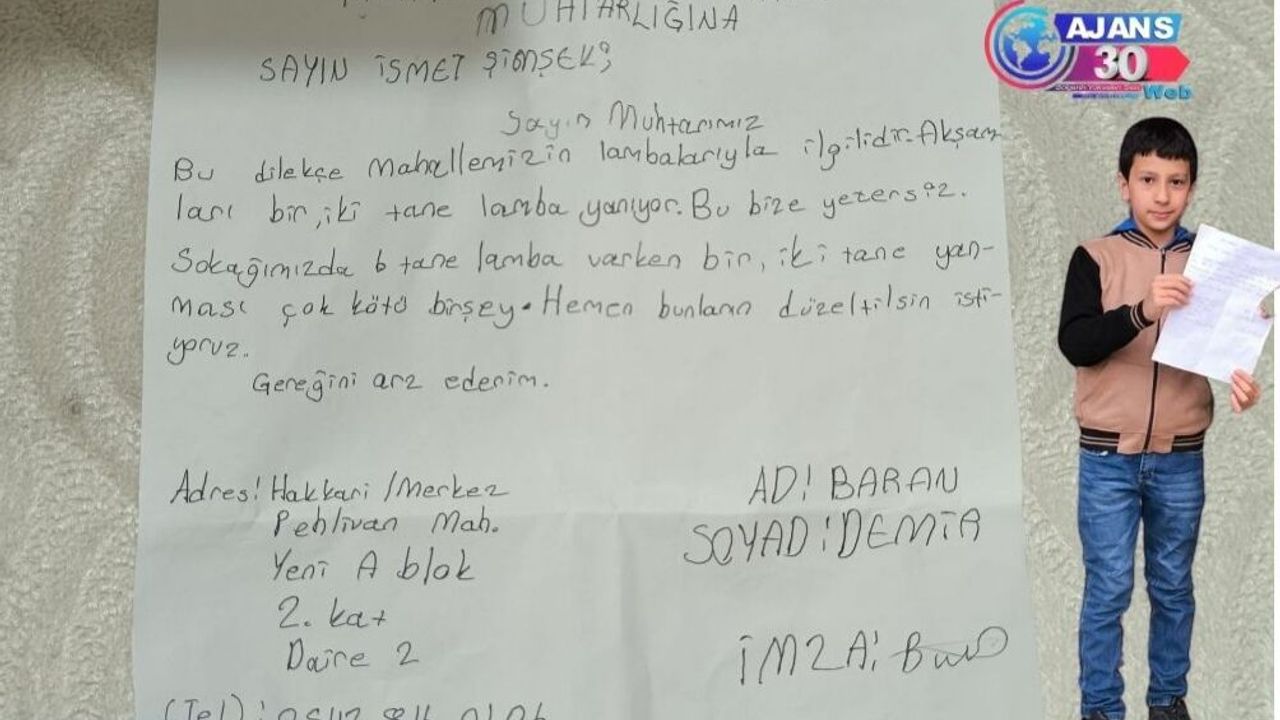 MUHTARLIĞINA
SAYIN İSMET ŞİMŞEK;
Sayın Muhtarımız
Bu dilekçe Mahallemizin lambalarıyla ilgilidir. Akşam
ları bir, iki tane lamba yanıyor. Bu bize yetersiz.
Sokağımızda 6 tane lamba varken bir, iki tane yan-
ması çok kötü birşey. Hemen bunların düzeltilsin isti-
yoruz.
Gereğini arz ederim.
Adres: Hakkari / Merkez
Pehlivan Mah.
Yeni A blok
2. kat
Daire 2
(Tel):
AD: BARAN
SOYAD: DEMİR
İMZA:
AJANS
30
Web